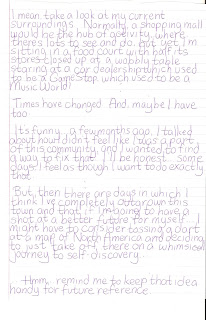 I mean, take a look at my current
surroundings. Normally, a shopping mall
would be the hub of activity, where
there's lots to see and do. But yet, I'm
sitting in a food court with half its
stores closed up at a wobbly table
staring at a car dealership which used
to be a GameStop which used to be a
Music World!
Times have changed. And, maybe I have
too.
It's funny, a few months ago, I talked
about how I didn't feel like I was a part
of this community, and I wanted to find
a way to fix that. I'll be honest, some
days I feel as though I want to do exactly
that.
But, then there are days in which I
think I've completely outgrown this
town and that if I'm going to have a
shot at a better future for myself, I
might have to consider tossing a dart
at a map of North America and deciding
to just take off there on a whimsical
journey to self-discovery.
Hmm, remind me to keep that idea
handy for future reference.